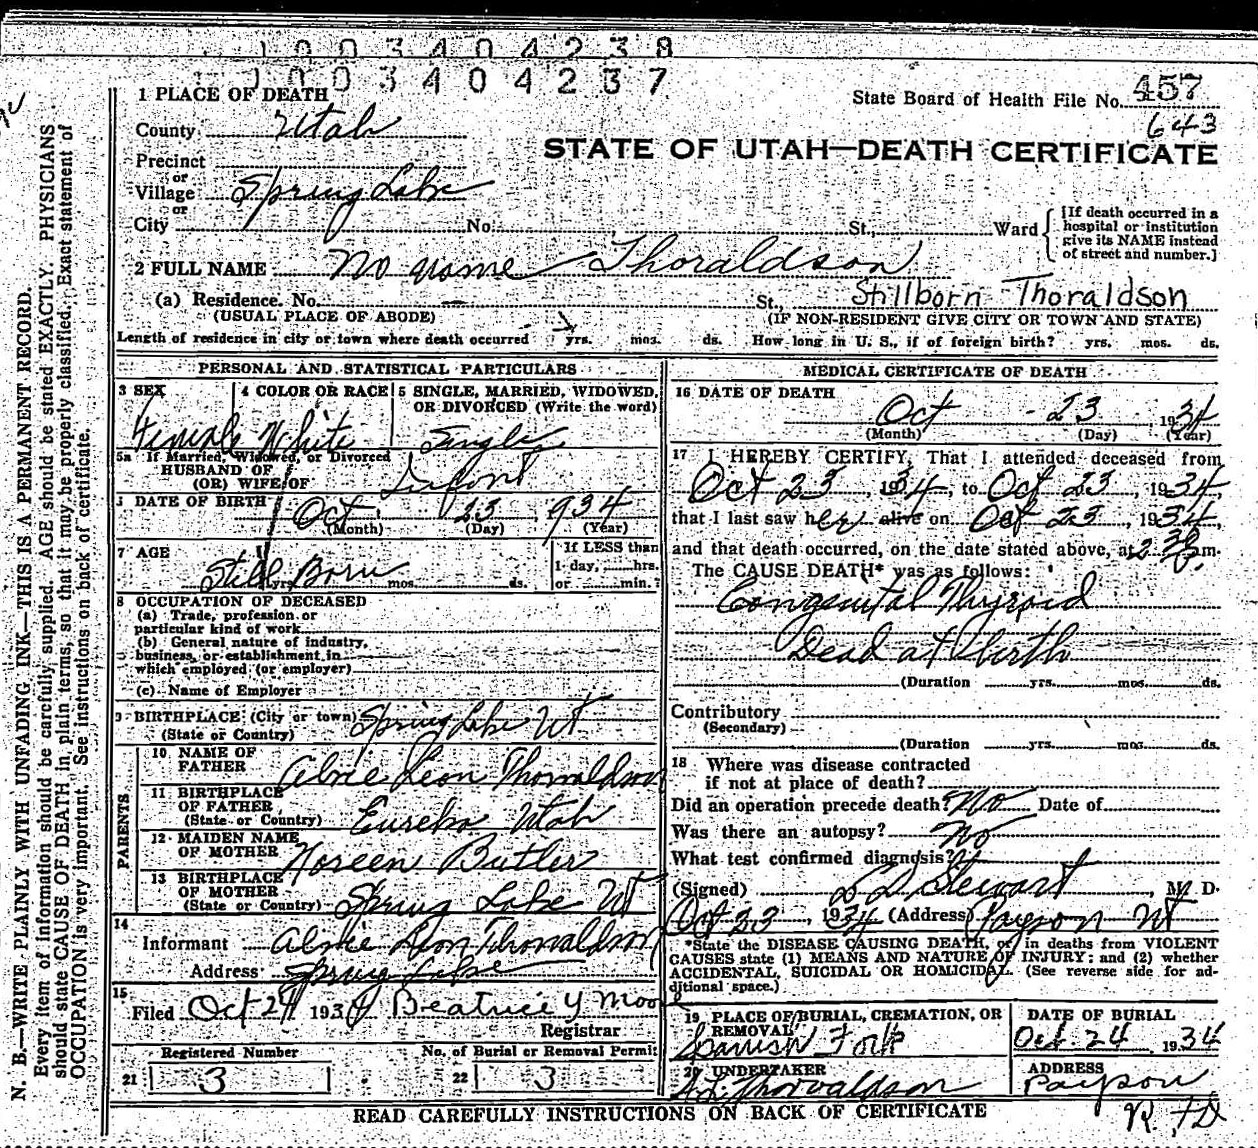 1003404238
1003404237
State Board of Health File No. 457
643
STATE OF UTAH—DEATH CERTIFICATE
1 PLACE OF DEATH
County Utah
Precinct
or
Village Spring Lake
or
City No. St., Ward
[If death occurred in a
hospital or institution
give its NAME instead
of street and number.]
2 FULL NAME No name Thoraldson
(a) Residence. No. — St., Stillborn Thoraldson
(USUAL PLACE OF ABODE) (IF NON-RESIDENT GIVE CITY OR TOWN AND STATE)
Length of residence in city or town where death occurred yrs. mos. ds. How long in U. S., if of foreign birth? yrs. mos. ds.
PERSONAL AND STATISTICAL PARTICULARS
3 SEX 4 COLOR OR RACE 5 SINGLE, MARRIED, WIDOWED,
OR DIVORCED (Write the word)
Female White Single
5a If Married, Widowed, or Divorced
HUSBAND OF
(OR) WIFE OF Infant
DATE OF BIRTH Oct 23, 934
(Month) (Day) (Year)
7 AGE
Still Born
yrs. mos. ds.
If LESS than
1 day, hrs.
or min.?
8 OCCUPATION OF DECEASED
(a) Trade, profession or
particular kind of work
(b) General nature of industry,
business, or establishment in
which employed (or employer)
(c) Name of Employer
9 BIRTHPLACE (City or town) Spring Lake Ut
(State or Country)
PARENTS
10 NAME OF
FATHER Leon Thorvaldson
11 BIRTHPLACE
OF FATHER
(State or Country) Eureka Utah
12 MAIDEN NAME
OF MOTHER Noreen Butler
13 BIRTHPLACE
OF MOTHER
(State or Country) Spring Lake Ut
14
Informant Leon Thorvaldson
Address Spring Lake
15
Filed Oct 24 1934 Beatrice Y Moore
Registrar
Registered Number No. of Burial or Removal Permit
21 3 22 3
MEDICAL CERTIFICATE OF DEATH
16 DATE OF DEATH
Oct 23 1934
(Month) (Day) (Year)
17 I HEREBY CERTIFY, That I attended deceased from
Oct 23, 1934, to Oct 23, 1934,
that I last saw her alive on Oct 23, 1934,
and that death occurred, on the date stated above, at m.
The CAUSE DEATH* was as follows:
Congenital Thyroid
Dead at birth
(Duration yrs. mos. ds.
Contributory
(Secondary)
(Duration yrs. mos. ds.
18 Where was disease contracted
if not at place of death?
Did an operation precede death? No Date of
Was there an autopsy? No
What test confirmed diagnosis?
(Signed) L D Stewart, M. D.
Oct 23, 1934 (Address) Payson Ut
*State the DISEASE CAUSING DEATH, or in deaths from VIOLENT
CAUSES state (1) MEANS AND NATURE OF INJURY; and (2) whether
ACCIDENTAL, SUICIDAL OR HOMICIDAL. (See reverse side for ad-
ditional space.)
19 PLACE OF BURIAL, CREMATION, OR
REMOVAL
Spanish Fork
DATE OF BURIAL
Oct. 24 1934
20 UNDERTAKER
Thorvaldson
ADDRESS
Payson
READ CAREFULLY INSTRUCTIONS ON BACK OF CERTIFICATE
N. B.—WRITE PLAINLY WITH UNFADING INK—THIS IS A PERMANENT RECORD.
Every item of information should be carefully supplied. AGE should be stated EXACTLY. PHYSICIANS
should state CAUSE OF DEATH in plain terms, so that it may be properly classified. Exact statement of
OCCUPATION is very important. See instructions on back of certificate.